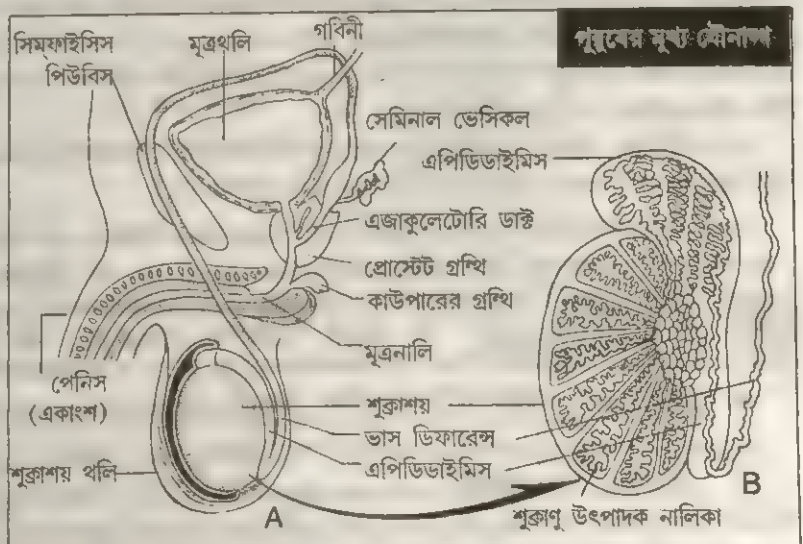 সিমফাইসিস
পিউবিস
মূত্রথলি
গবিনী
পুরুষের মুখ্য যৌনাঙ্গ
সেমিনাল ভেসিকল
এপিডিডাইমিস
এজাকুলেটোরি ডাক্ট
প্রোস্টেট গ্রন্থি
কাউপারের গ্রন্থি
মূত্রনালি
পেনিস
(একাংশ)
শুক্রাশয়
ভাস ডিফারেন্স
এপিডিডাইমিস
শুক্রাশয় থলি
A
B
শুক্রাণু উৎপাদক নালিকা